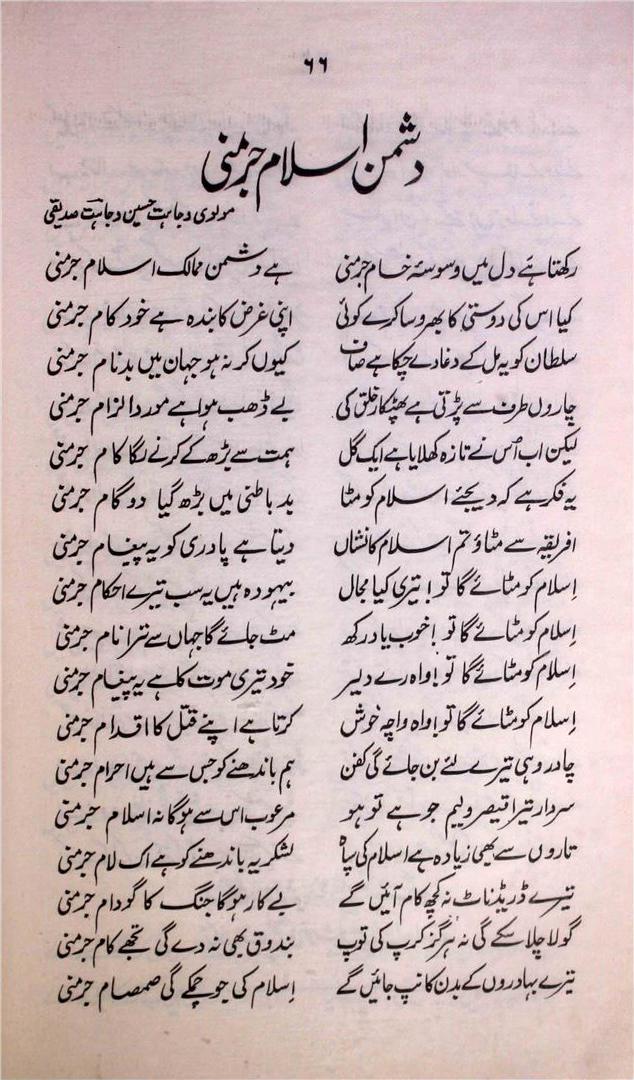 ۶۶
دشمن اسلام جرمنی
مولوی وجاہت حسین وجاہت صدیقی
رکھتا ہے دل میں وسوسۂ خام جرمنی ہے دشمن ممالک اسلام جرمنی
کیا اس کی دوستی کا بھروسا کرے کوئی اپنی غرض کا بندہ ہے خود کام جرمنی
سلطان کو یہ مل کے دغا دے چکا ہے صاف کیوں کر نہ ہو جہان میں بدنام جرمنی
چاروں طرف سے پڑتی ہے پھٹکار خلق کی بے ڈھب ہوا ہے مورد الزام جرمنی
لیکن اب اُس نے تازہ کھلایا ہے ایک گل ہمت سے بڑھ کے کرنے لگا کام جرمنی
یہ فکر ہے کہ دیجئے اسلام کو مٹا بد باطنی میں بڑھ گیا دو گام جرمنی
افریقہ سے مٹاؤ تم اسلام کا نشاں دیتا ہے پادری کو یہ پیغام جرمنی
اِسلام کو مٹائے گا تو! تیری کیا مجال بیہودہ ہیں یہ سب تیرے احکام جرمنی
اِسلام کو مٹائے گا تو! خوب یاد رکھ مٹ جائے گا جہاں سے ترا نام جرمنی
اِسلام کو مٹائے گا تو! واہ رے دلیر خود تیری موت کا ہے یہ پیغام جرمنی
اِسلام کو مٹائے گا تو! واہ واچہ خوش کرتا ہے اپنے قتل کا اقدام جرمنی
چادر وہی تیرے لئے بن جائے گی کفن ہم باندھنے کو جس سے ہیں احرام جرمنی
سردار تیرا قیصر ولیم جو ہے تو ہو مرعوب اس سے ہوگا نہ اسلام جرمنی
تاروں سے بھی زیادہ ہے اسلام کی سپاہ لشکر یہ باندھنے کو ہے اک لام جرمنی
تیرے ڈریڈناٹ نہ کچھ کام آئیں گے بے کار ہوگا جنگ کا گودام جرمنی
گولا چلا سکے گی نہ ہرگز کرپ کی توپ بندوق بھی نہ دے گی تجھے کام جرمنی
تیرے بہادروں کے بدن کانپ جائیں گے اِسلام کی جو چمکے گی صمصام جرمنی